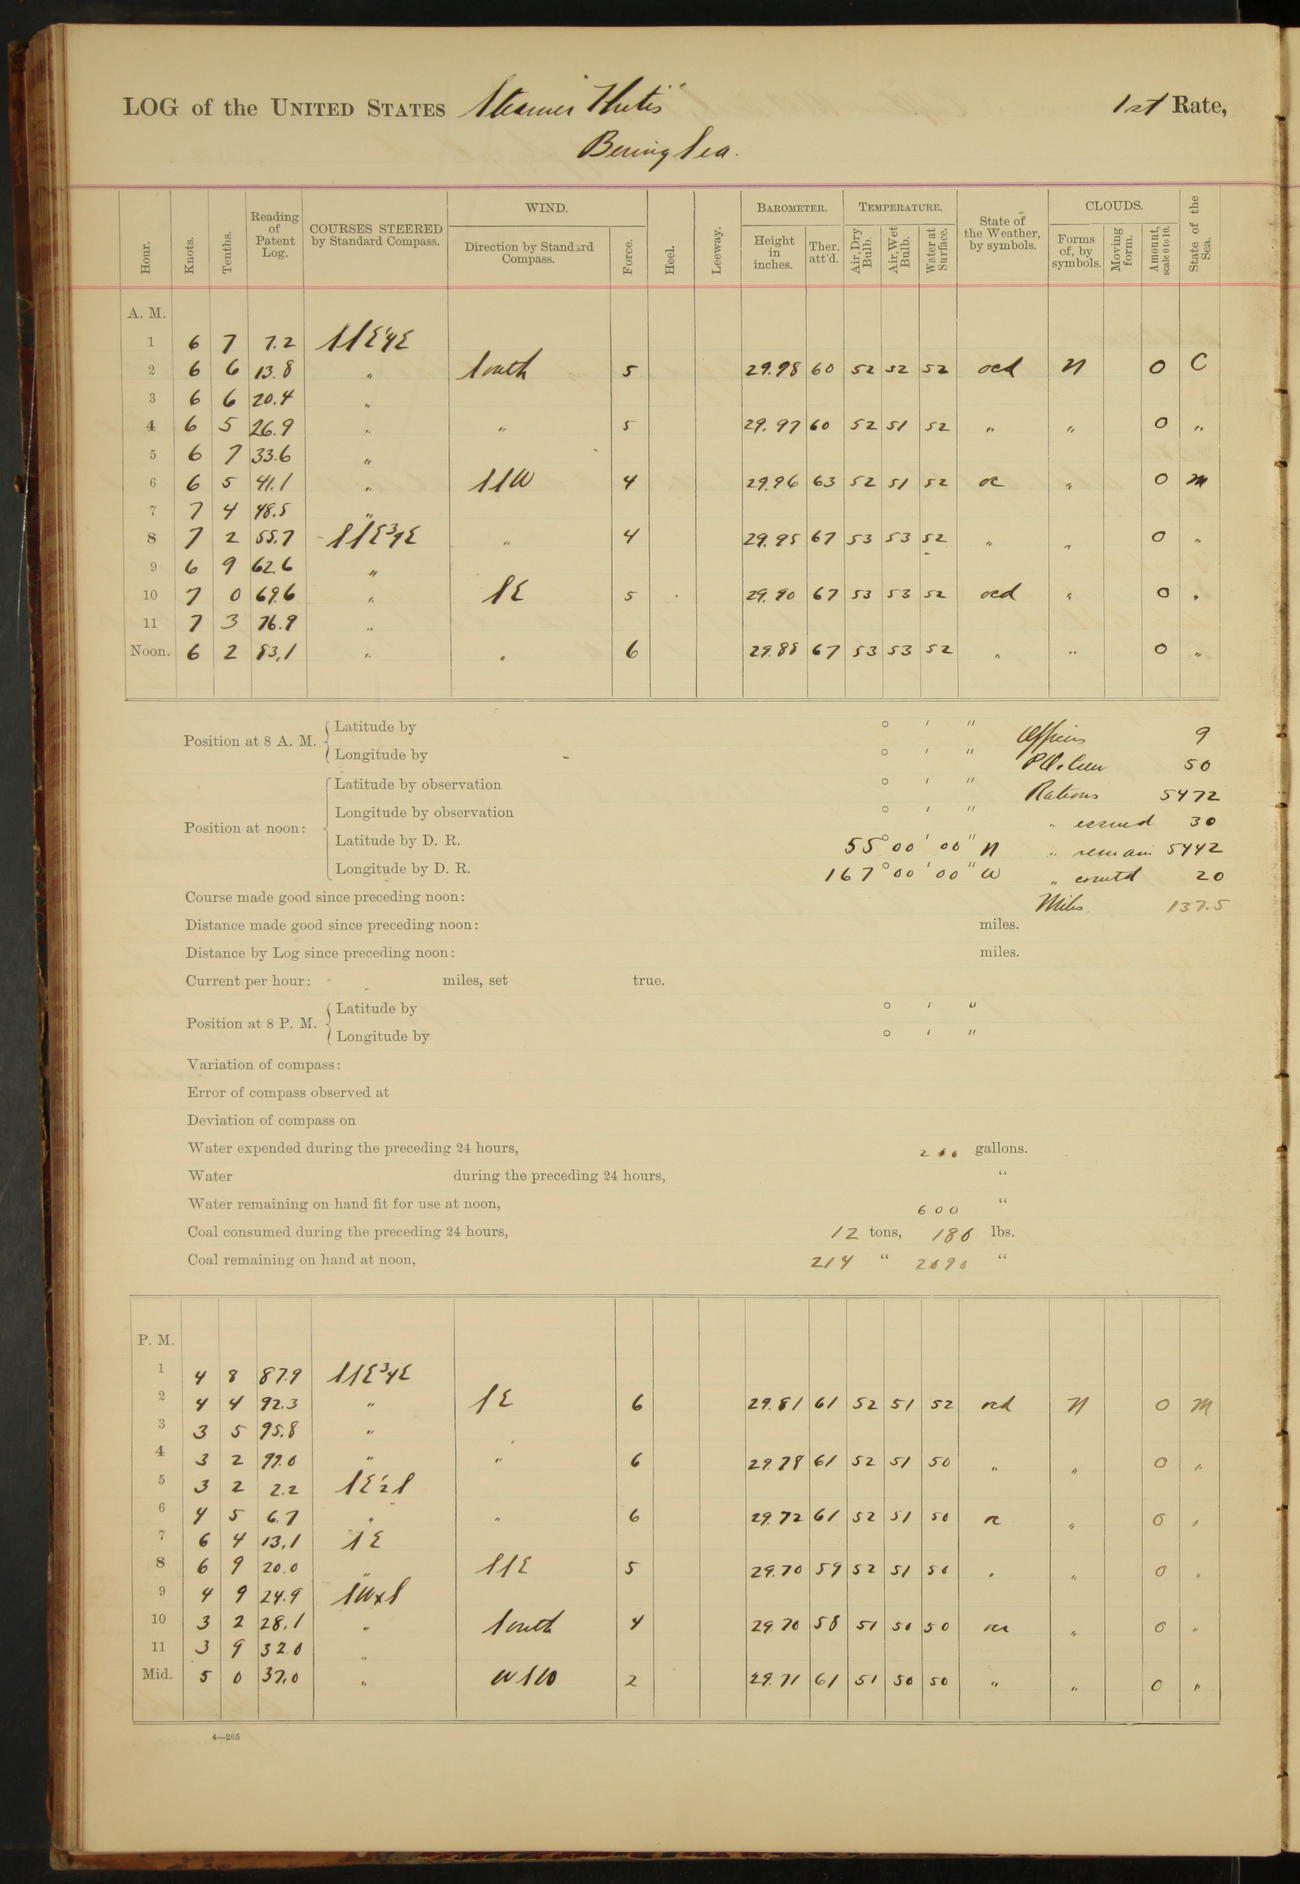 LOG of the UNITED STATES Steamer "Thetis" 1st Rate,
Bering Sea.
Hour. Knots. Tenths. Reading of Patent Log. COURSES STEERED by Standard Compass. WIND. Direction by Standard Compass. Force. Heel. Leeway. BAROMETER. Height in inches. Ther. att'd. TEMPERATURE. Air, Dry Bulb. Air, Wet Bulb. Water at Surface. State of the Weather, by symbols. CLOUDS. Forms of, by symbols. Moving form. Amount, scale 0 to 10. State of the Sea.
A. M.
1 6 7 7.2 SSE¼E
2 6 6 13.8 " South 5 29.98 60 52 52 52 ocd N 0 C
3 6 6 20.4 "
4 6 5 26.9 " " 5 29.97 60 52 51 52 " " 0 "
5 6 7 33.6 "
6 6 5 41.1 " SSW 4 29.96 63 52 51 52 oc " 0 M
7 7 4 48.5 "
8 7 2 55.7 SSE¾E " 4 29.95 67 53 53 52 " " 0 "
9 6 9 62.6 "
10 7 0 69.6 " SE 5 29.90 67 53 53 52 ocd " 0 "
11 7 3 76.9 "
Noon. 6 2 83.1 " " 6 29.88 67 53 53 52 " " 0 "
Position at 8 A. M. Latitude by ° ' " Officers 9
Longitude by ° ' " P.O. & Crew 50
Position at noon: Latitude by observation ° ' " Rations 5472
Longitude by observation ° ' " " issued 30
Latitude by D. R. 55° 00' 00" N " remain 5442
Longitude by D. R. 167° 00' 00" W " comtd 20
Course made good since preceding noon: Miles 137.5
Distance made good since preceding noon: miles.
Distance by Log since preceding noon: miles.
Current per hour: miles, set true.
Position at 8 P. M. Latitude by ° ' "
Longitude by ° ' "
Variation of compass:
Error of compass observed at
Deviation of compass on
Water expended during the preceding 24 hours, 200 gallons.
Water during the preceding 24 hours, "
Water remaining on hand fit for use at noon, 600 "
Coal consumed during the preceding 24 hours, 12 tons, 180 lbs.
Coal remaining on hand at noon, 214 " 2090 "
P. M.
1 4 8 87.9 SSE¾E
2 4 4 92.3 " SE 6 29.81 61 52 51 52 ocd N 0 M
3 3 5 95.8 "
4 3 2 99.0 " " 6 29.78 61 52 51 50 " " 0 "
5 3 2 2.2 SE½S
6 4 5 6.7 " " 6 29.72 61 52 51 50 oc " 0 "
7 6 4 13.1 SE
8 6 9 20.0 " SSE 5 29.70 59 52 51 50 " " 0 "
9 4 9 24.9 SWxS
10 3 2 28.1 " South 4 29.70 58 51 50 50 " 0 "
11 3 9 32.0 "
Mid. 5 0 37.0 " WSW 2 29.71 61 51 50 50 " " 0 "
4—265